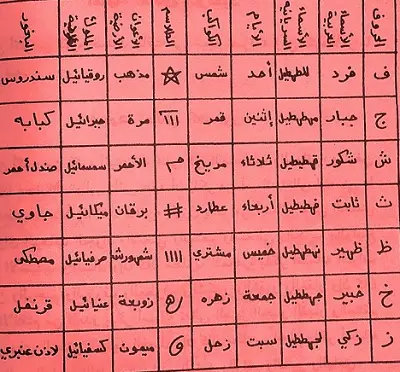 الحروف الأسماء العربية الأسماء السريانية الأيام الكواكب الطلاسم الأعوان الأرضية الملوك العلوية البخور
ف فرد للطهطيل أحد شمس مذهب روقيائيل سندروس
ج جبار مهطهطيل إثنين قمر مرة جبرائيل كبابه
ش شكور قهطيطيل ثلاثاء مريخ الأحمر سمسمائيل صندل أحمر
ث ثابت فهطيطيل أربعاء عطارد # برقان ميكائيل جاوي
ظ ظهير نهطهطيل خميس مشتري شمهورش صرفيائيل مصطكى
خ خبير جهلططيل جمعة زهره زوبعة عنيائيل قرنفل
ز زكي لجهططيل سبت زحل ميمون كسفيائيل لاذن عنبري